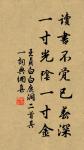 讀書不覺已春深
一寸光陰一寸金
王貞白白鹿洞二首其
一詞典網集